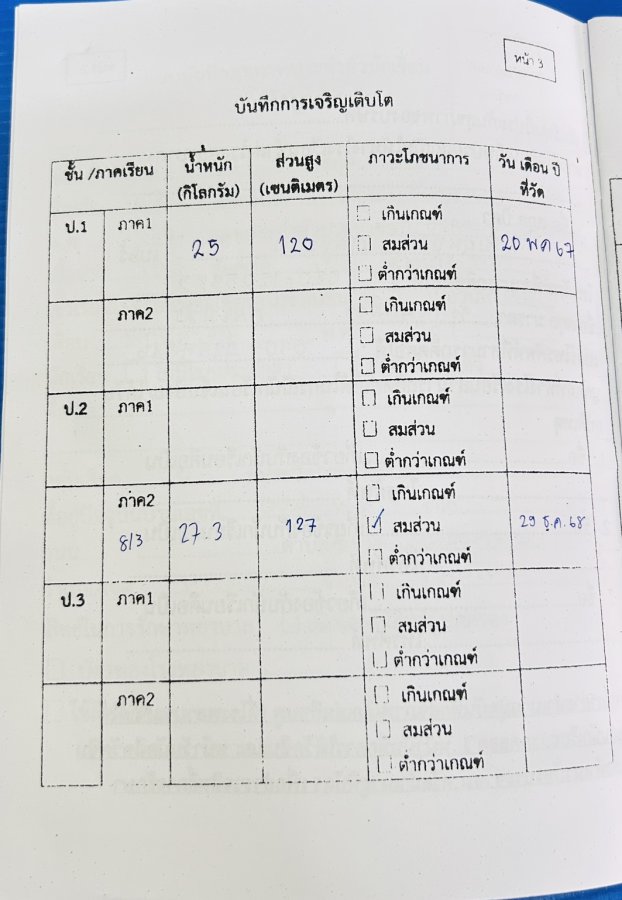 หน้า 3
บันทึกการเจริญเติบโต
ชั้น /ภาคเรียน น้ำหนัก (กิโลกรัม) ส่วนสูง (เซนติเมตร) ภาวะโภชนาการ วัน เดือน ปี ที่วัด
ป.1 ภาค1 25 120 เกินเกณฑ์
สมส่วน 20 พค 67
ต่ำกว่าเกณฑ์
ภาค2 เกินเกณฑ์
สมส่วน
ต่ำกว่าเกณฑ์
ป.2 ภาค1 เกินเกณฑ์
สมส่วน
ต่ำกว่าเกณฑ์
ภาค2 เกินเกณฑ์
8/3 27.3 127 สมส่วน 29 ธ.ค.68
ต่ำกว่าเกณฑ์
ป.3 ภาค1 เกินเกณฑ์
สมส่วน
ต่ำกว่าเกณฑ์
ภาค2 เกินเกณฑ์
สมส่วน
ต่ำกว่าเกณฑ์